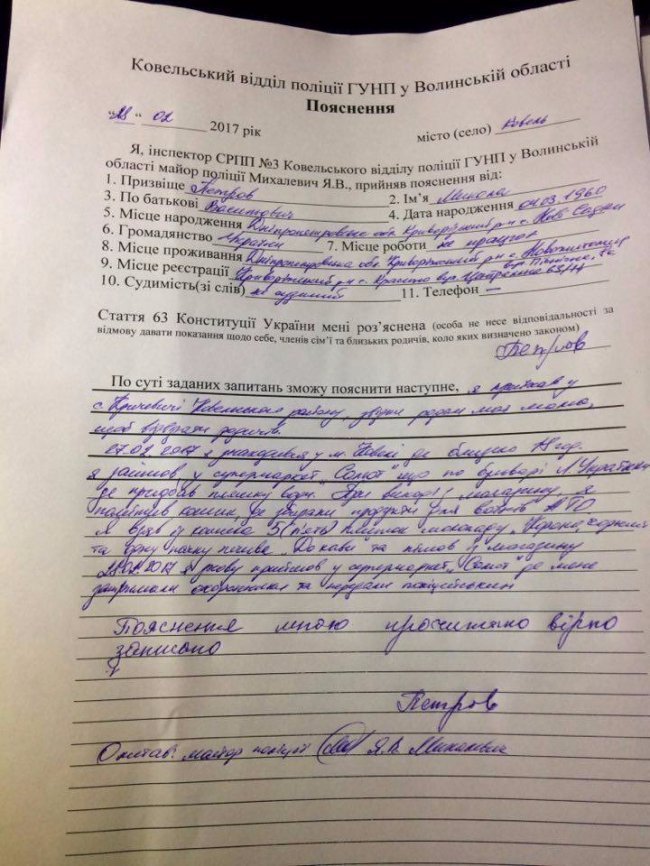 Ковельський відділ поліції ГУНП у Волинській області
Пояснення
"28" 02 2017 рік місто (село) Ковель
Я, інспектор СРПП №3 Ковельського відділу поліції ГУНП у Волинській
області майор поліції Михалевич Я.В., прийняв пояснення від:
1. Прізвище Петров 2. Ім'я Микола
3. По батькові 4. Дата народження 04.03.1960
5. Місце народження Дніпропетровська обл Криворізький р-н с.
6. Громадянство Україна 7. Місце роботи не працює
8. Місце проживання Дніпропетровська обл Криворізький р-н с.
9. Місце реєстрації Криворізький р-н с.
10. Судимість(зі слів) не судимий 11. Телефон —
Стаття 63 Конституції України мені роз'яснена (особа не несе відповідальності за
відмову давати показання щодо себе, членів сім'ї та близьких родичів, коло яких визначено законом)
Петров
По суті заданих запитань зможу пояснити наступне, я приїхав у
с. Ковельського району, звідки родом моя мама,
щоб відвідати родичів.
27.02.2017 я знаходився у м. Ковелі де близько год.
я зайшов у супермаркет "Салют" що по бульварі Л. Українки
де придбав пляшку води. При виході з магазину, я
помітив кошик, де збирали продукти для воїнів АТО.
Я взяв із кошика 5 (п'ять) плиток шоколаду "Корона" чорний
та одну пачку печива та пішов з магазину
28.02.2017 я знову прийшов у супермаркет "Салют" де мене
затримали охоронники та передали поліцейським
Пояснення мною прочитано вірно
записано
Петров
Опитав: майор поліції Я.В. Михалевич